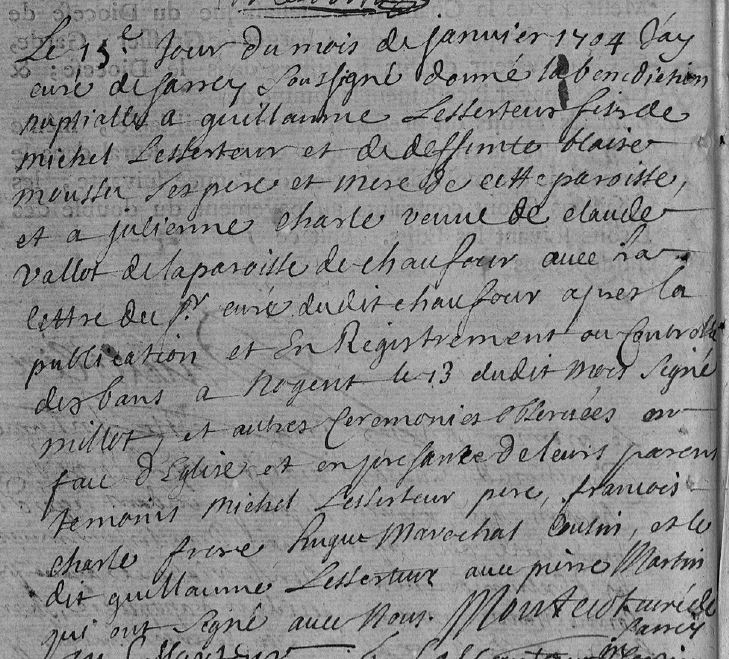 Le 15e Jour du mois de janvier 1704 J'ay
curé de sarrey soussigné donné la bénédiction
nuptialle a guillaume Lesserteur fils de
michel Lesserteur et de deffunte blaise
moussu ses pere et mere de cette paroisse,
et a julienne charle veuve de claude
vallot de la paroisse de chaufour avec la
lettre du sr curé dudit chaufour apres la
publication et En Registrement ou Controlle
des bans a Nogent le 13 dudit mois signé
millot, et autres Ceremonies observées en
face d'Eglise et en presance de leurs parens
temoins michel Lesserteur pere, francois
charle frere hugue Marechal Cousin, et le
dit guillaume Lesserteur avec pierre Martin
qui ont signé avec Nous.
curé de
sarrey